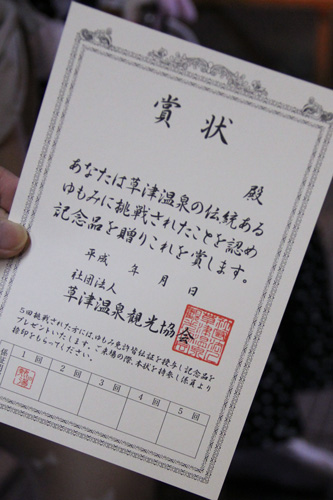 賞状
殿
あなたは草津温泉の伝統ある
ゆもみに挑戦されたことを認め
記念品を贈りこれを賞します。
平成 年 月 日
社団法人
草津温泉観光協会
5回挑戦された方には、ゆもみ免許皆伝証を授与し記念品を
プレゼントいたします。ご来場の際、本状を持参し係員より
検印をもらってください。
1回 2回 3回 4回 5回